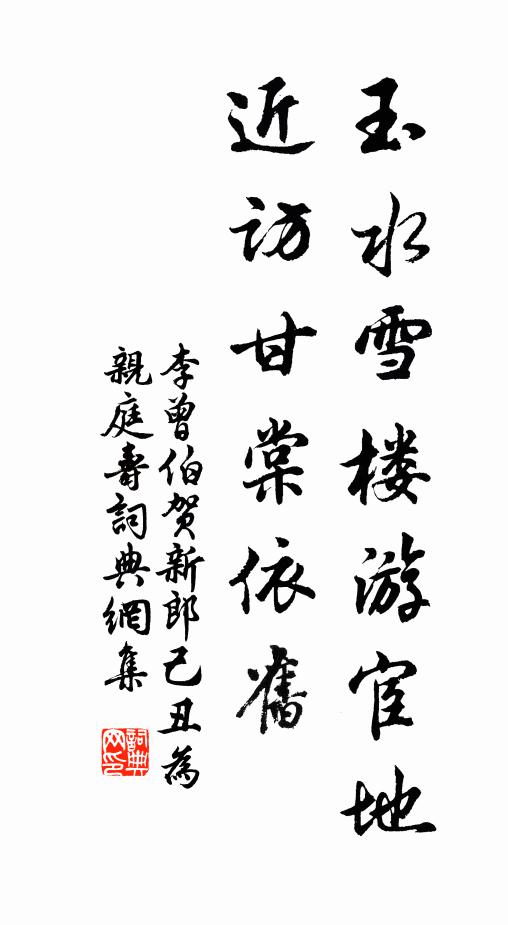 玉水雪楼游宦地
近访甘棠依舊
李曾伯贺新郎己丑為
親庭壽詞典網集
詞典
网印